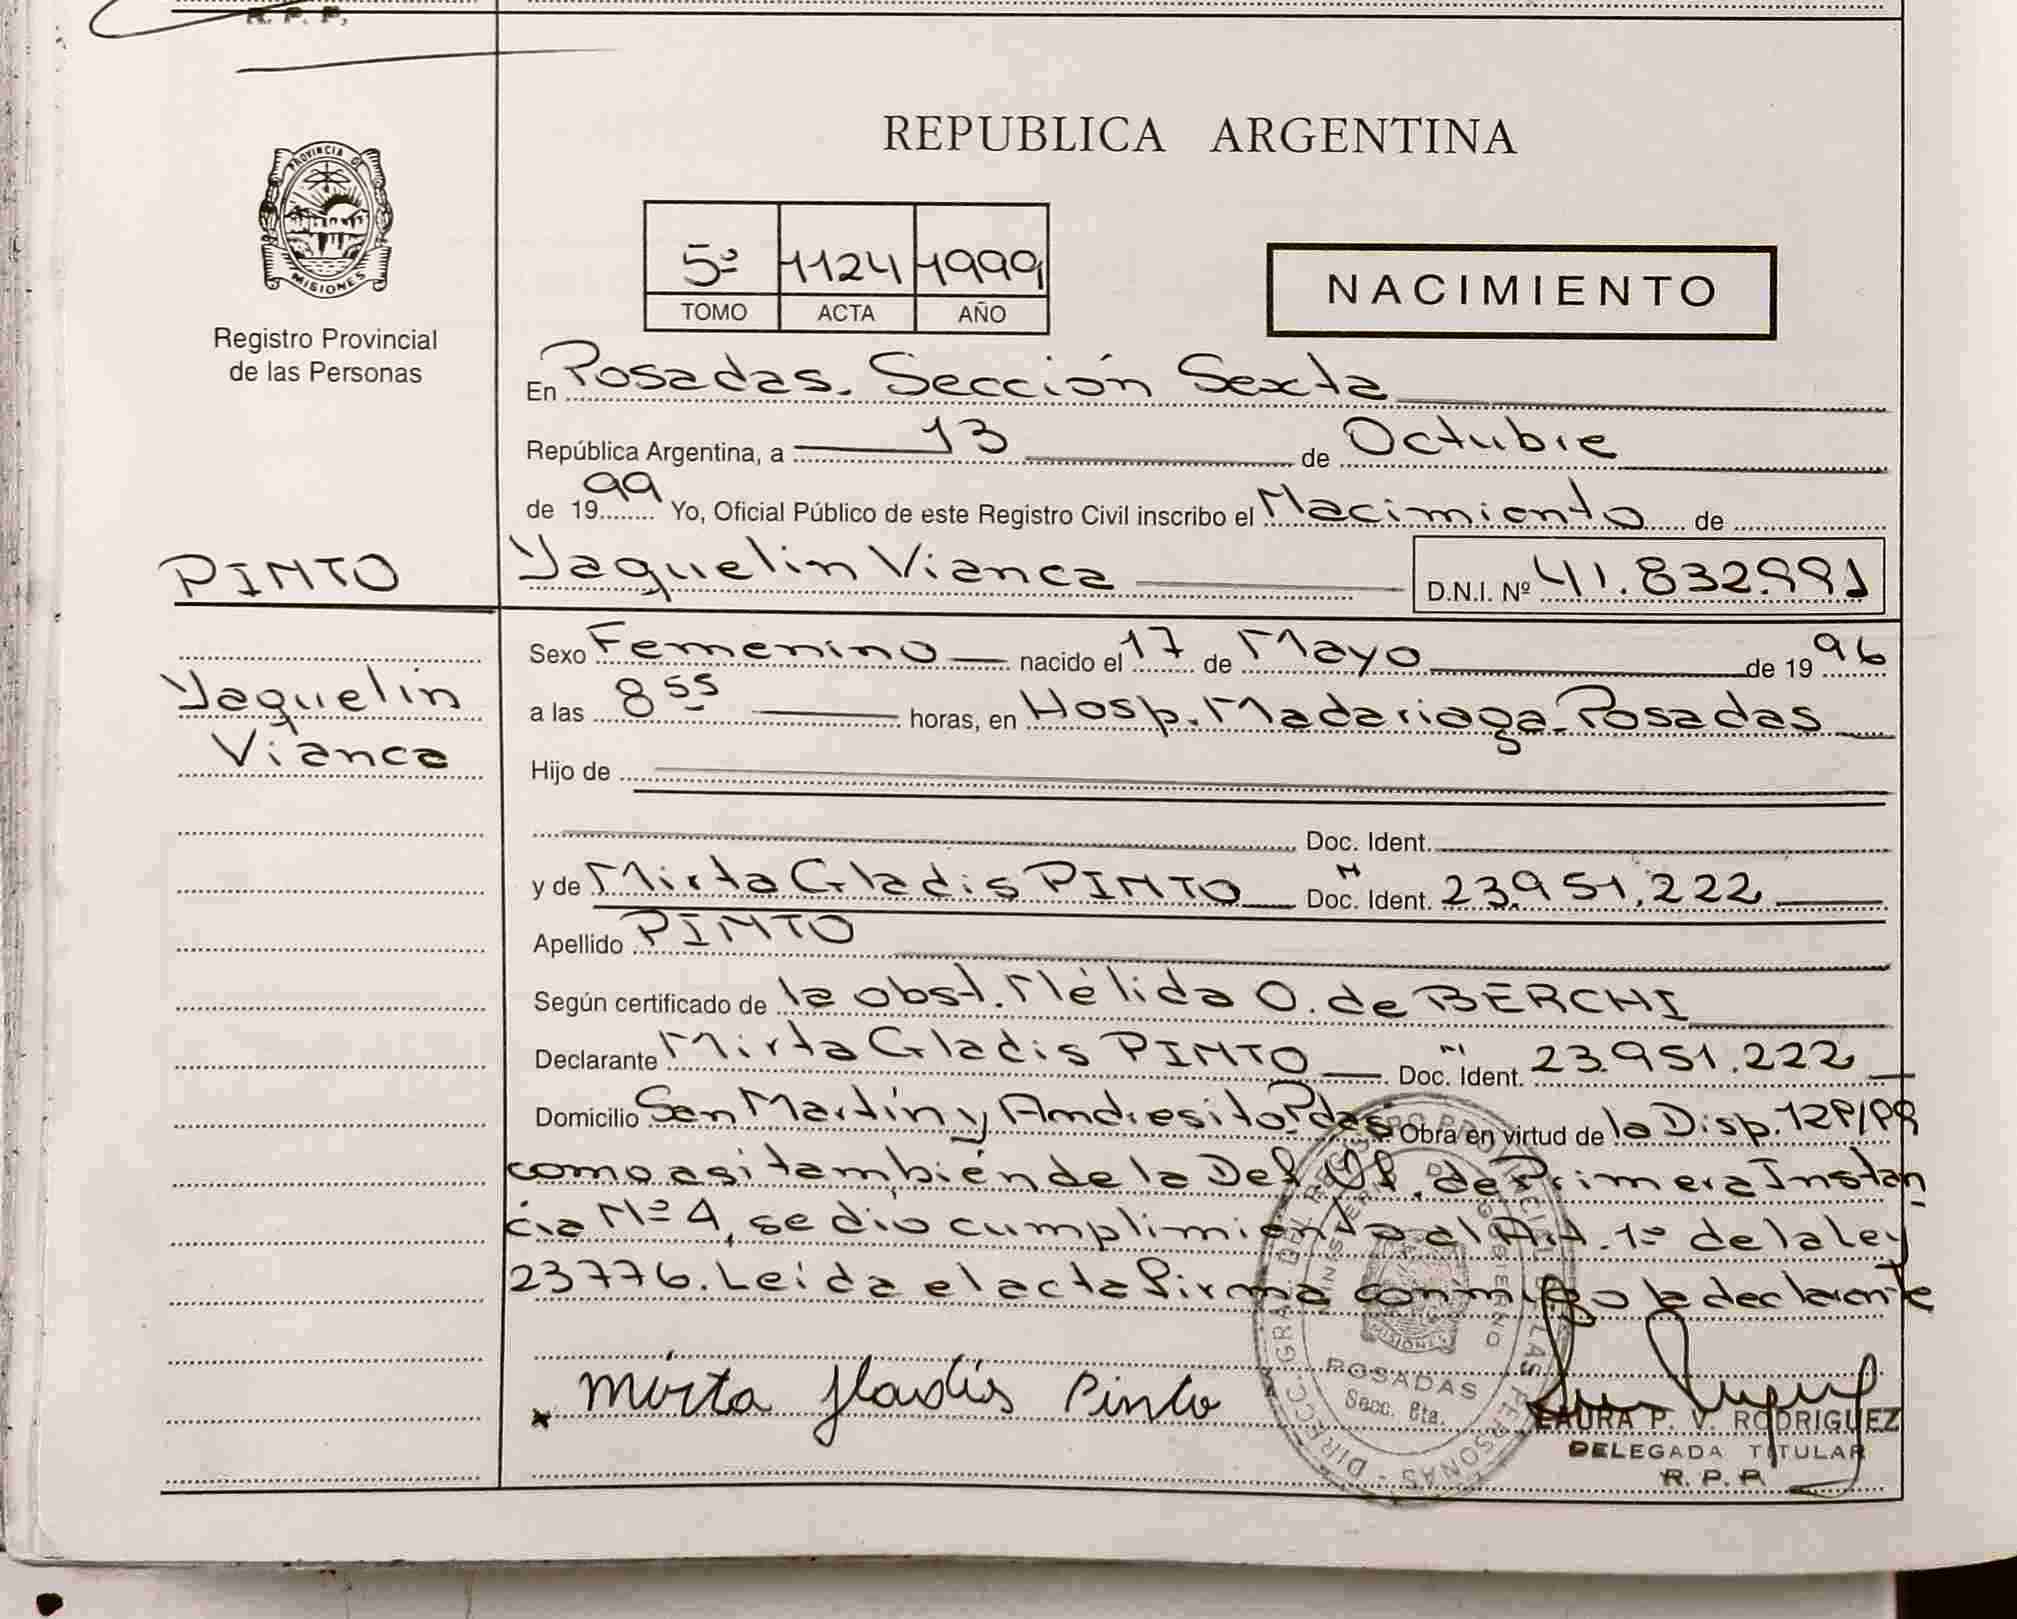 R. P. P.
REPUBLICA ARGENTINA
PROVINCIA DE
MISIONES
Registro Provincial
de las Personas
5º 1124 1999
TOMO ACTA AÑO
NACIMIENTO
En Posadas. Sección Sexta
República Argentina, a 13 de Octubre
de 1999 Yo, Oficial Público de este Registro Civil inscribo el Nacimiento de
PINTO
Yaquelin Vianca D.N.I. Nº 41.832.991
Yaquelin
Vianca
Sexo Femenino nacido el 17 de Mayo de 1996
a las 8 55 horas, en Hosp. Madariaga-Posadas
Hijo de
Doc. Ident.
y de Mirta Gladis PINTO Doc. Ident. 23.951.222
Apellido PINTO
Según certificado de la obst. Nélida O. de BERCHI
Declarante Mirta Gladis PINTO Doc. Ident. 23.951.222
Domicilio San Martín y Andresito Pdas Obra en virtud de la Disp.
como asi también de la Def. Of. de Primera Instan
cia Nº 4, se dio cumplimiento al Art. 1º de la Ley
23776. Leída el acta firma conmigo la declarante
Mirta Gladis Pinto
DIRECC. GRAL. DEL REGISTRO PROVINCIAL DE LAS PERSONAS
MINISTERIO DE GOBIERNO
MISIONES
POSADAS
Secc. 6ta.
LAURA P. V. RODRIGUEZ
DELEGADA TITULAR
R. P. P.